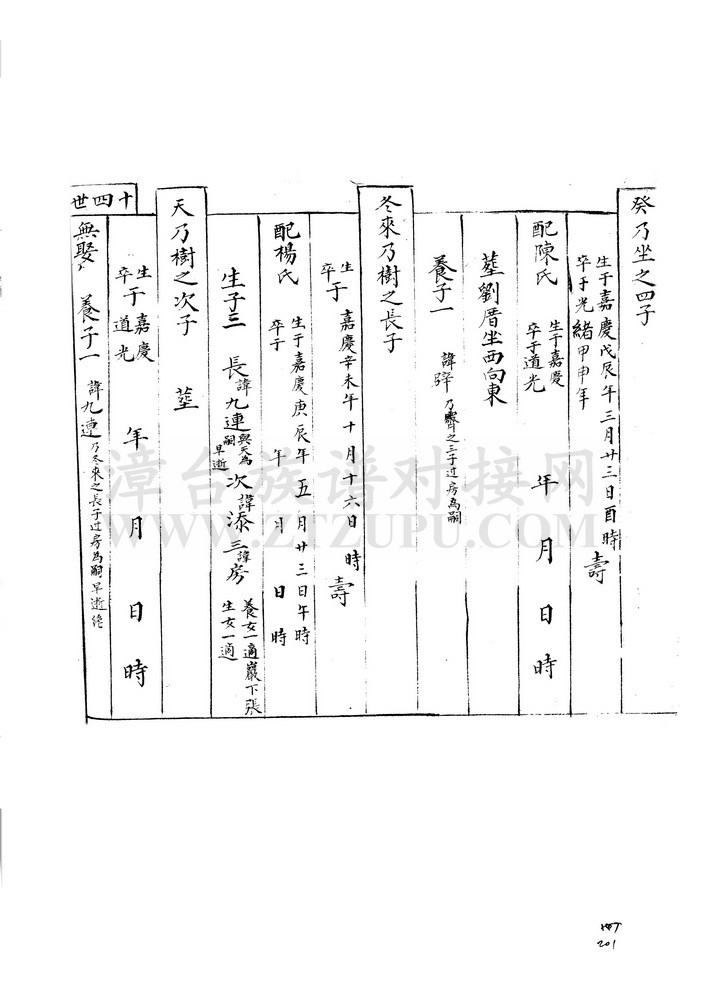 癸乃坐之四子
生于嘉慶戊辰年三月廿三日酉時
卒于光緒甲申年
壽
配陳氏
生于嘉慶
卒于道光
年 月 日 時
塟劉厝坐西向東
養子一
諱 乃 之三子过房為嗣
冬來乃樹之長子
生于嘉慶辛未年十月十六日 時
卒
壽
配楊氏
生于嘉慶庚辰年五月廿三日午時
卒于 年 月 日 時
生子三 長諱九連 與天為嗣早逝 次諱添 三諱房
養女一適巖下張
生女一適
天乃樹之次子 塟
十四世
生于嘉慶
卒 道光
年 月 日 時
無娶 養子一 諱九連乃冬來之長子过房為嗣早逝
漳台族谱对接网
WWW.ZTZUPU.COM
201